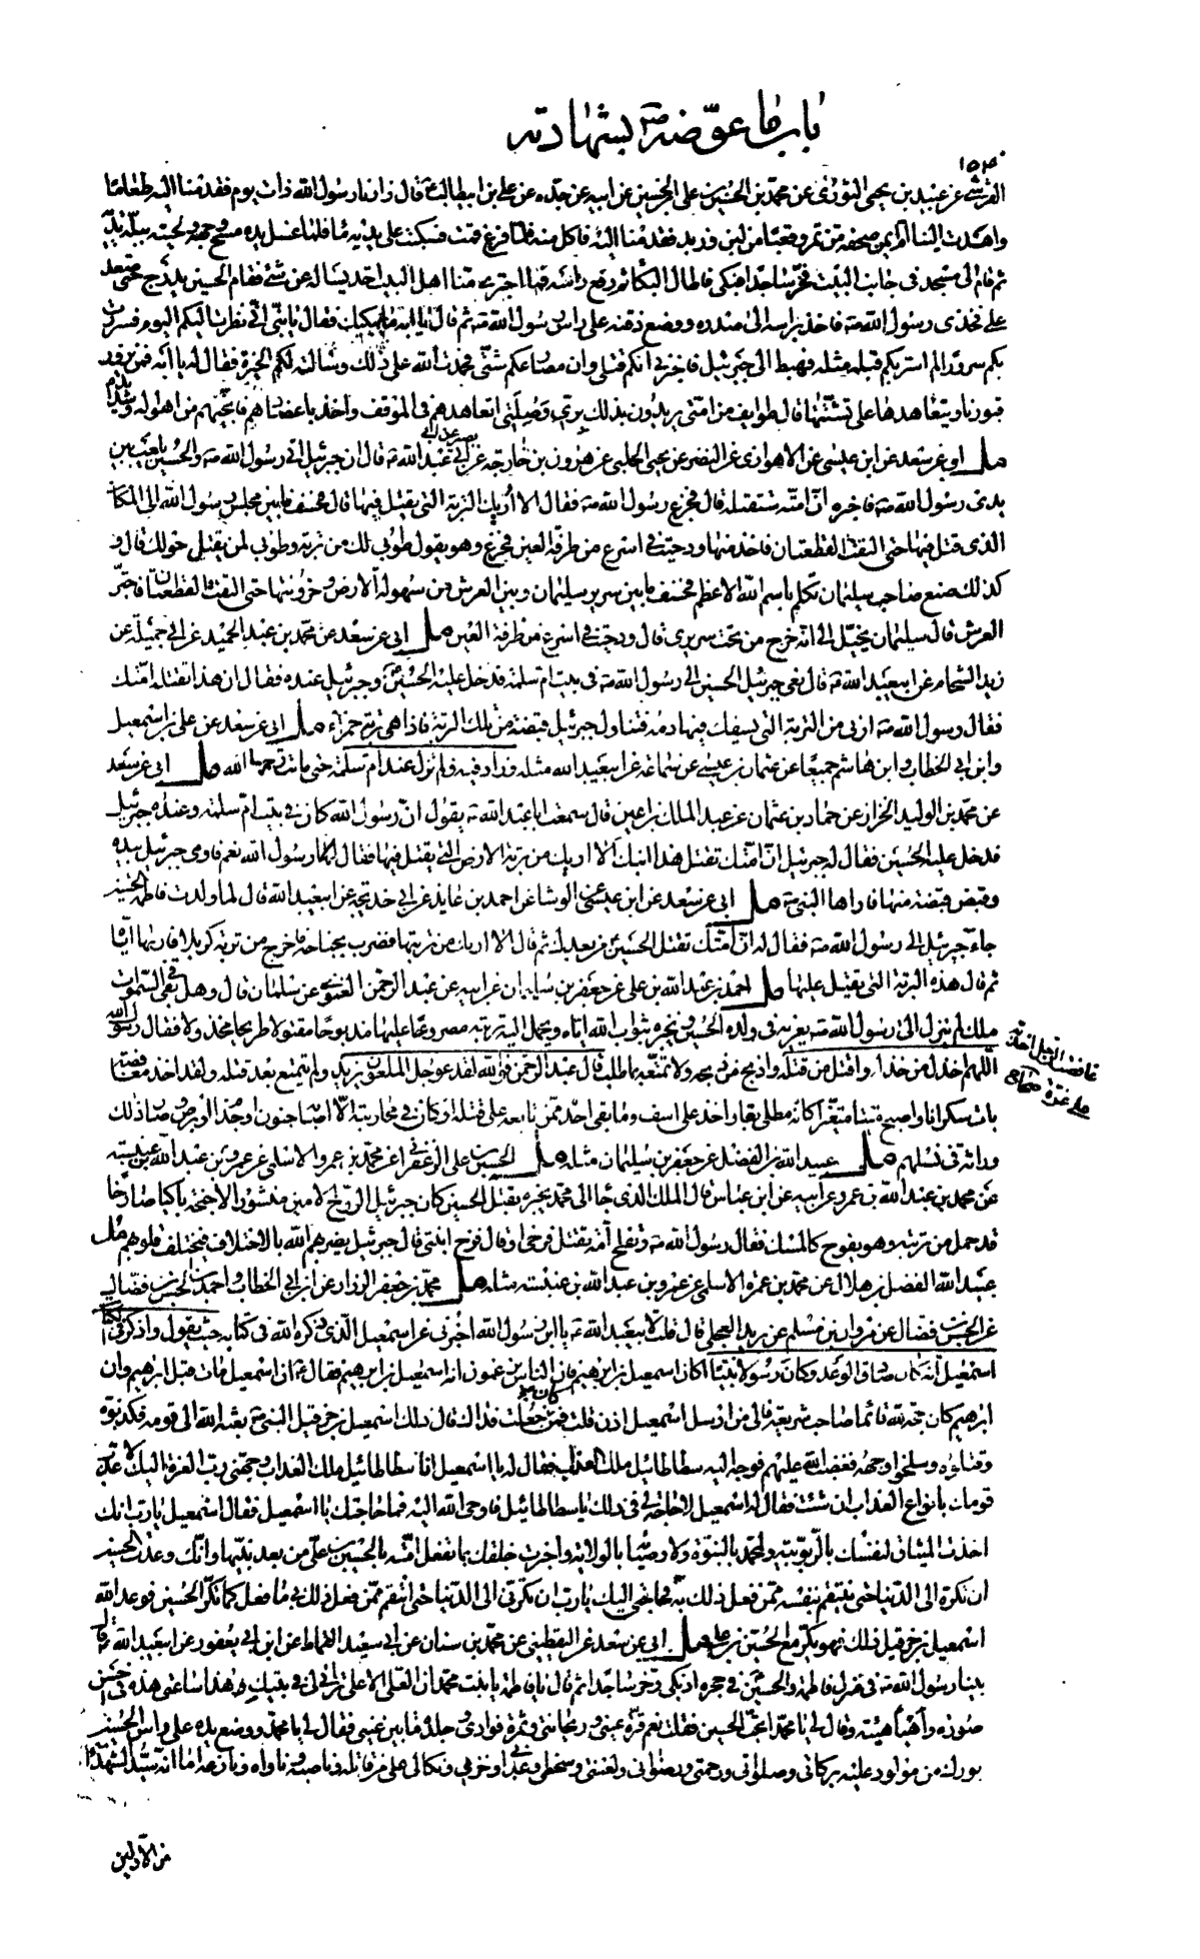 باب ما عوضه ص بشهادته
القرشي عن عبيد بن يحيى الثوري عن محمد بن الحسين بن علي بن الحسين عن ابيه عن جده عن علي بن ابيطالب ع قال زارنا رسول الله ذات يوم فقدمنا اليه طعاما
واهدت الينا ام ايمن صحفة من تمر وقعبا من لبن وزبد فقدمنا اليه فاكل منه فلما فرغ قمت فسكبت على يديه ماء فلما غسل يده مسح وجهه ولحيته ببلة يديه
ثم قام الى مسجد في جانب البيت فخر ساجدا فبكى فاطال البكاء ثم رفع راسه فما اجترء منا اهل البيت احد يسأله عن شئ فقام الحسين يدرج حتى صعد
على فخذي رسول الله ص فاخذ براسه الى صدره ووضع ذقنه على راس رسول الله ص ثم قال يا ابه ما يبكيك فقال يا بني اني نظرت اليكم اليوم فسررت
بكم سرورا لم اسر بكم قبله مثله فهبط الي جبرئيل فاخبرني انكم قتلى وان مصارعكم شتى فحمدت الله على ذلك وسالت لكم الخيرة فقال له يا ابه فمن يزور
قبورنا ويتعاهدها على تشتتها قال طوايف من امتي يريدون بذلك بري وصلتي اتعاهدهم في الموقف واخذ باعضادهم فانجيهم من اهواله وشدائده
مل ابي عن سعد عن ابن عيسى عن الاهوازي عن النضر عن يحيى الحلبي عن هرون بن خارجة عن ابي بصير عن ابي عبد الله ع قال ان جبرئيل اتى رسول الله ص والحسين يلعب بين
يدي رسول الله ص فاخبره ان امته ستقتله قال فجزع رسول الله ص فقال الا اريك التربة التي يقتل فيها قال فخسف ما بين مجلس رسول الله الى المكان
الذي قتل فيها حتى التقت القطعتان فاخذ منها ودحيت في اسرع من طرفة العين فخرج وهو يقول طوبى لك من تربة وطوبى لمن يقتل حولك قال و
كذلك صنع صاحب سليمان تكلم باسم الله الاعظم فخسف ما بين سرير سليمان وبين العرش من سهولة الارض وحزونتها حتى التقت القطعتان فاجتر
العرش قال سليمان يخيل الي انه خرج من تحت سريري قال ودحيت في اسرع من طرفة العين مل ابي عن سعد عن محمد بن عبد الحميد عن ابي جميلة عن
زيد الشحام عن ابيعبد الله ع قال نعى جبرئيل الحسين الى رسول الله ص في بيت ام سلمة فدخل عليه الحسين وجبرئيل عنده فقال ان هذا تقتله امتك
فقال رسول الله ص ارني من التربة التي يسفك فيها دمه فتناول جبرئيل قبضة من تلك التربة فاذا هي تربة حمراء مل ابي عن سعد عن علي بن اسمعيل
وابن ابي الخطاب وابن هاشم جميعا عن عثمان بن عيسى عن سماعة عن ابيعبد الله مثله وزاد فيه فلم تزل عند ام سلمة حتى ماتت رحمها الله مل ابي عن سعد
عن محمد بن الوليد الخزاز عن حماد بن عثمان عن عبد الملك بن اعين قال سمعت ابا عبد الله ع يقول ان رسول الله كان في بيت ام سلمة وعنده جبرئيل
فدخل عليه الحسين فقال له جبرئيل ان امتك تقتل هذا ابنك الا اريك من تربة الارض التي يقتل فيها فقال رسول الله نعم فاهوى جبرئيل بيده
وقبض قبضة منها فاراها النبي ص مل ابي عن سعد عن ابن عيسى عن الوشا عن احمد بن عايذ عن ابي خديجة عن ابيعبد الله قال لما ولدت فاطمة الحسين
جاء جبرئيل الى رسول الله ص فقال له ان امتك تقتل الحسين من بعدك ثم قال الا اريك من تربتها فضرب بجناحه فاخرج من تربة كربلا فاراها اياه
ثم قال هذه التربة التي يقتل عليها مل احمد بن عبد الله بن علي عن جعفر بن سليمان عن ابيه عن عبد الرحمن الغنوي عن سليمان قال وهل بقي في السموات
ملك لم ينزل الى رسول الله ص يعزيه في ولده الحسين ويخبره بثواب الله اياه ويحمل اليه تربته مصروعا عليها مذبوحا مقتولا طريحا مخذولا فقال رسول الله
اللهم اخذل من خذله واقتل من قتله واذبح من ذبحه ولا تمتعه بما طلب قال عبد الرحمن فوالله لقد عوجل الملعون يزيد ولم يتمتع بعد قتله ولقد اخذ مغافصة
بات سكرانا واصبح ميتا متغيرا كانه مطلي بقار واخذ على اسف وما بقي احد ممن تابعه على قتله او كان في محاربته الا اصابه جنون او جذام او برص وصار ذلك
وراثة في نسلهم مل عبيد الله بن الفضل عن جعفر بن سليمان مثله مل الحسين بن علي الزعفراني عن محمد بن عمرو الاسلمي عن عمرو بن عبد الله بن عنبسة
عن محمد بن عبد الله بن عمرو عن ابيه عن ابن عباس قال الملك الذي جاء الى محمد يخبره بقتل الحسين كان جبرئيل الروح الامين منشور الاجنحة باكيا صارخا
قد حمل من تربته وهو يفوح كالمسك فقال رسول الله ص وتفلح امة تقتل فرخي او قال فرخ ابنتي قال جبرئيل يضربهم الله بالاختلاف فيختلف قلوبهم مل
عبيد الله الفضل بن هلال عن محمد بن عمرة الاسلمي عن عمرو بن عبد الله بن عنبسة مثله مل محمد بن جعفر الرزاز عن ابن ابي الخطاب واحمد بن الحسن بن فضال
عن الحسن بن فضال عن مروان بن مسلم عن بريد العجلي قال قلت لابيعبد الله ع يا ابن رسول الله اخبرني عن اسمعيل الذي ذكره الله في كتابه حيث يقول واذكر في الكتاب
اسمعيل انه كان صادق الوعد وكان رسولا نبيا اكان اسمعيل بن ابرهيم فان الناس يزعمون انه اسمعيل بن ابرهيم فقال ع ان اسمعيل مات قبل ابرهيم وان
ابرهيم كان حجة لله قائما صاحب شريعة فالى من ارسل اسمعيل اذن قلت فمن كان جعلت فداك قال ذلك اسمعيل بن حزقيل النبي ع بعثه الله الى قومه فكذبوه
وقتلوه وسلخوا وجهه فغضب الله عليهم فوجه اليه سطاطائيل ملك العذاب فقال له يا اسمعيل انا سطاطائيل ملك العذاب وجهني رب العزة اليك لاعذب
قومك بانواع العذاب ان شئت فقال له اسمعيل لا حاجة لي في ذلك يا سطاطائيل فاوحى الله اليه فما حاجتك يا اسمعيل فقال اسمعيل يا رب انك
اخذت الميثاق لنفسك بالربوبية ولمحمد بالنبوة ولاوصيائه بالولاية واخبرت خلقك بما تفعل امته بالحسين بن علي من بعد نبيها وانك وعدت الحسين
ان تكره الى الدنيا حتى ينتقم بنفسه ممن فعل ذلك به فحاجتي اليك يا رب ان تكرني الى الدنيا حتى انتقم ممن فعل ذلك بي ما فعل كما تكر الحسين فوعد الله
اسمعيل بن حزقيل ذلك فهو يكر مع الحسين بن علي مل ابي عن سعد عن اليقطيني عن محمد بن سنان عن ابي سعيد القماط عن ابن ابي يعفور عن ابيعبد الله ع قال
بينا رسول الله ص في منزل فاطمة والحسين في حجره اذ بكى وخر ساجدا ثم قال يا فاطمة يا بنت محمد ان العلي الاعلى تراءى لي في بيتك هذا ساعتي هذه في احسن
صورة واهيأ هيئة وقال لي يا محمد اتحب الحسين فقلت نعم قرة عيني وريحانتي وثمرة فوادي وجلدة ما بين عيني فقال لي يا محمد ووضع يده على راس الحسين
بورك من مولود عليه بركاتي وصلواتي ورحمتي ورضواني ولعنتي وسخطي وعذابي وخزيي ونكالي على من قتله وناصبه وناواه ونازعه اما انه سيد الشهداء
من الاولين